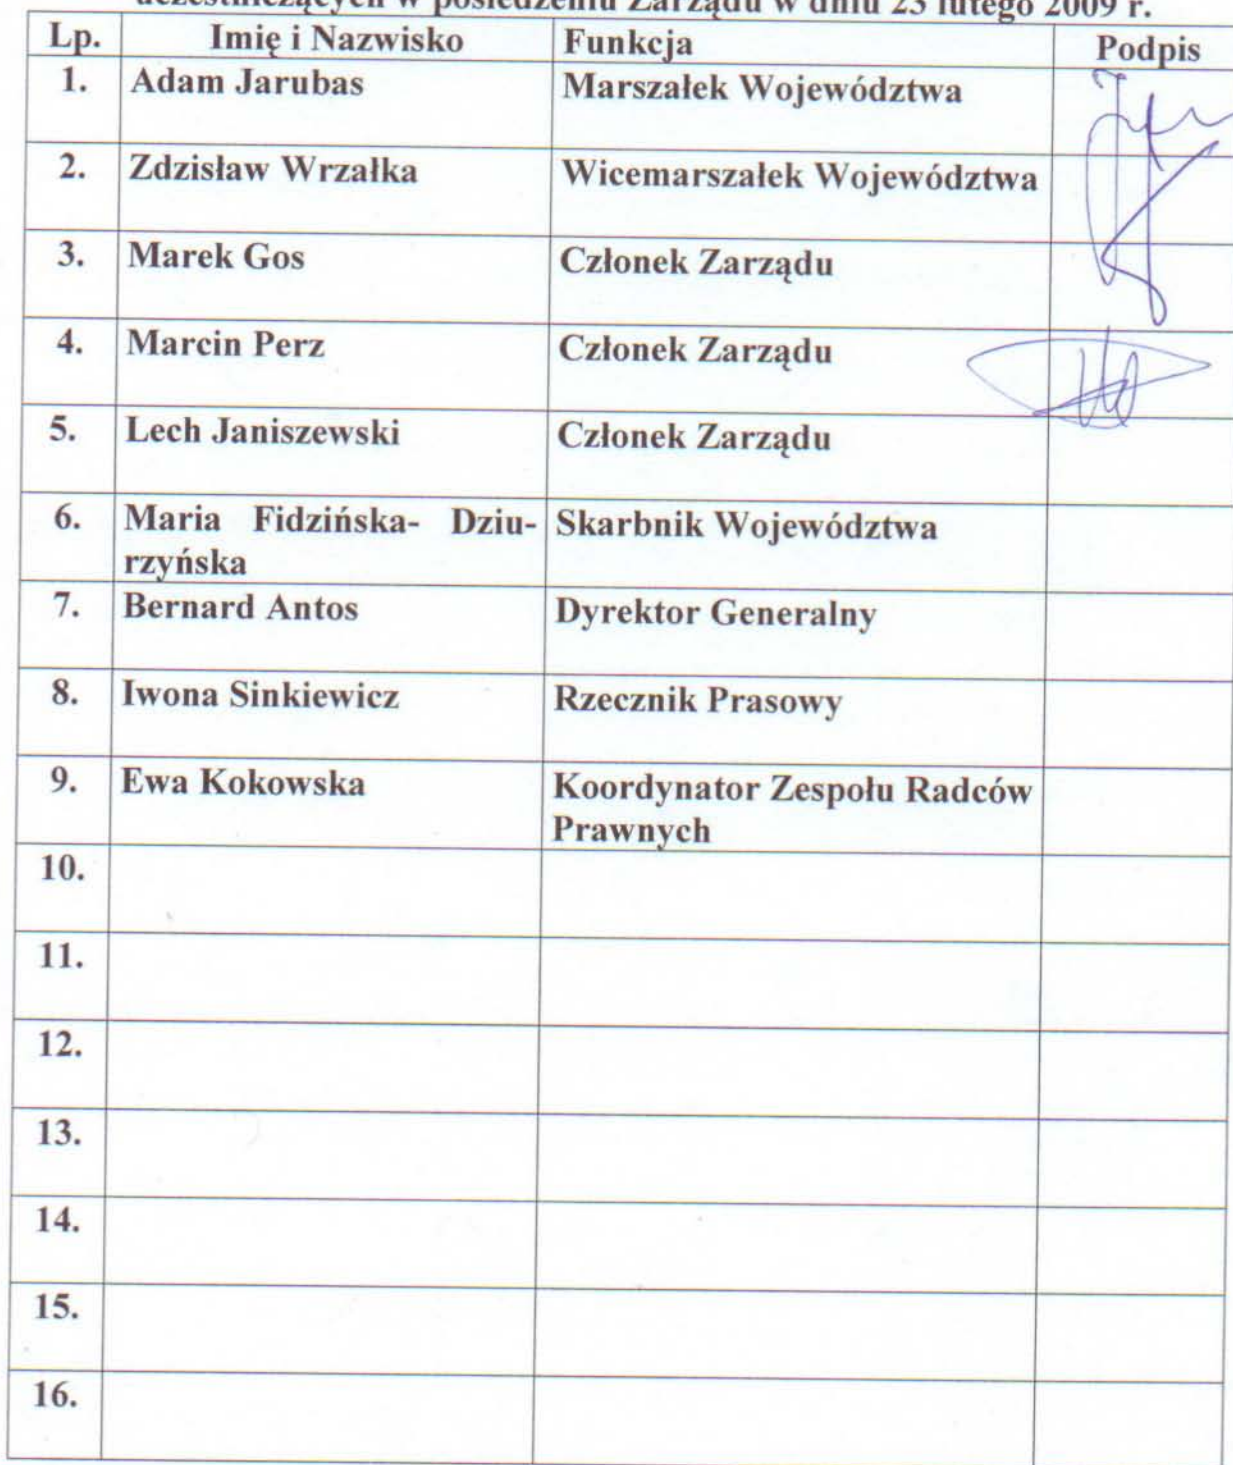 uczestniczących w posiedzeniu Zarządu w dniu 23 lutego 2009 r.
Lp. Imię i Nazwisko Funkcja Podpis
1. Adam Jarubas Marszałek Województwa
2. Zdzisław Wrzałka Wicemarszałek Województwa
3. Marek Gos Członek Zarządu
4. Marcin Perz Członek Zarządu
5. Lech Janiszewski Członek Zarządu
6. Maria Fidzińska- Dziu- Skarbnik Województwa
rzyńska
7. Bernard Antos Dyrektor Generalny
8. Iwona Sinkiewicz Rzecznik Prasowy
9. Ewa Kokowska Koordynator Zespołu Radców
Prawnych
10.
11.
12.
13.
14.
15.
16.